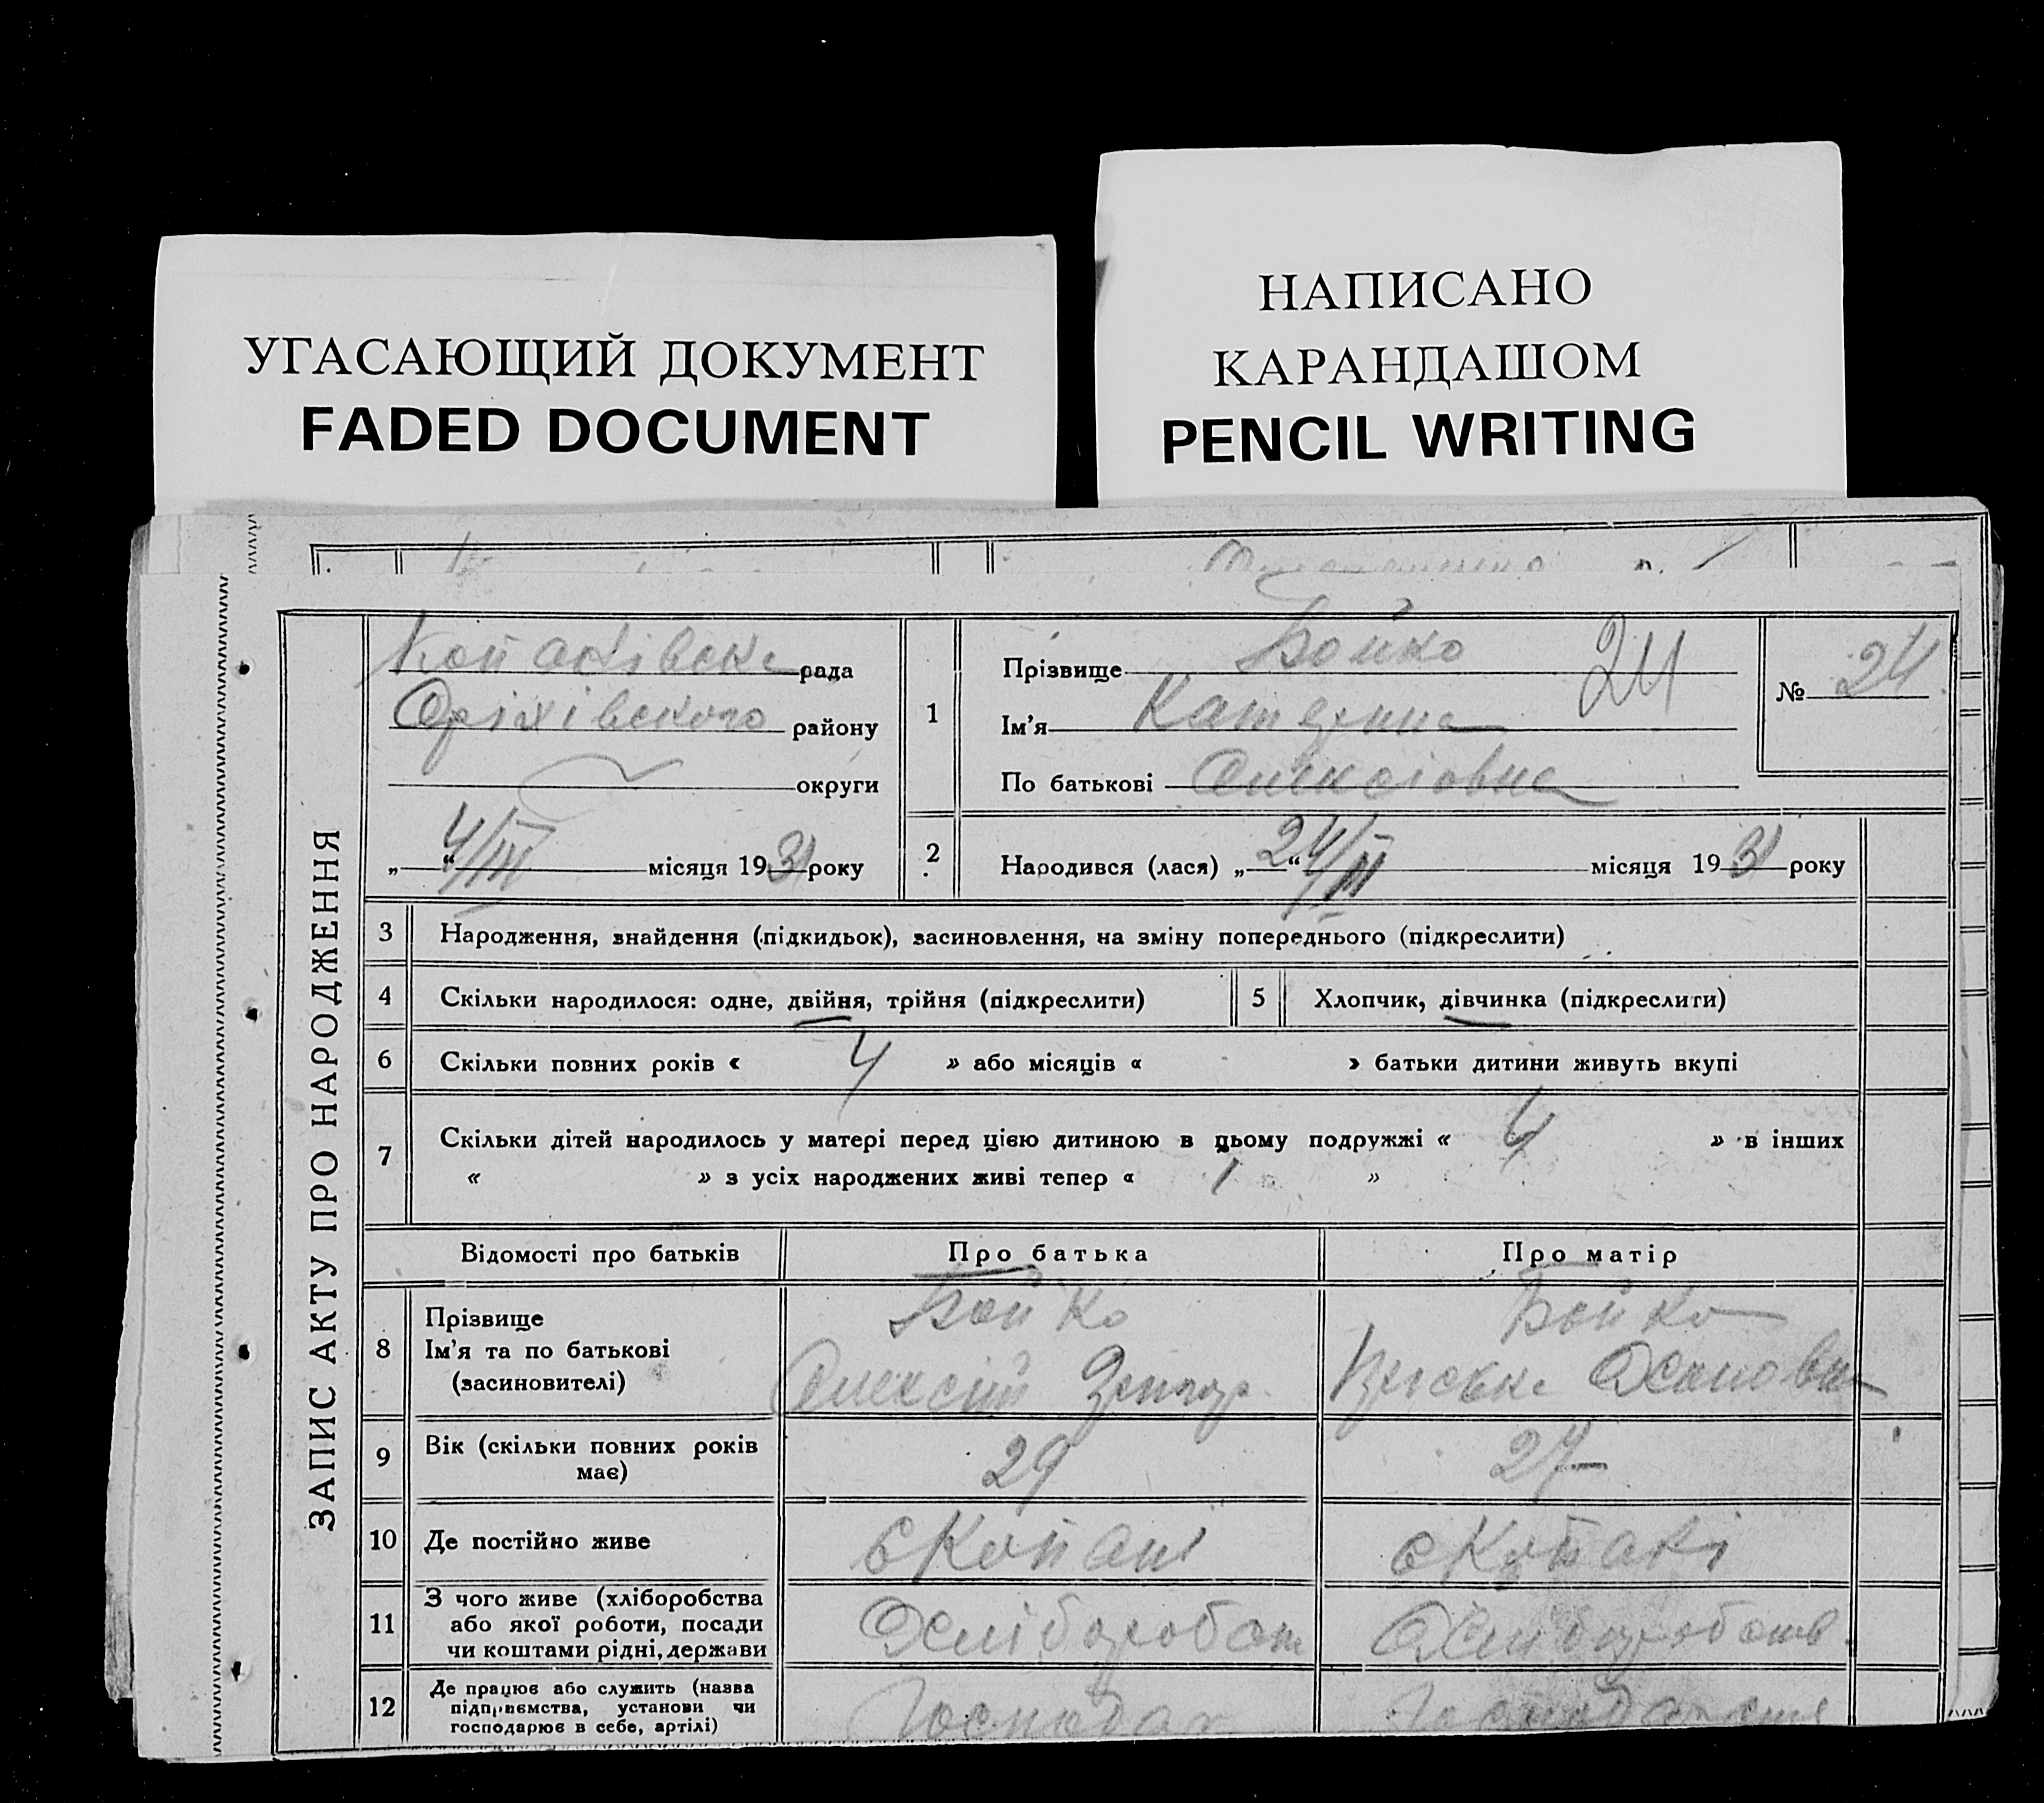 УГАСАЮЩИЙ ДОКУМЕНТ
FADED DOCUMENT
НАПИСАНО
КАРАНДАШОМ
PENCIL WRITING
ЗАПИС АКТУ ПРО НАРОДЖЕННЯ
Копанівська рада
Оріхівского району
округи
„ “ 4/III місяця 1931 року
1
Прізвище Бойко 24
Ім’я Катерина
По батькові Олексіовна
№ 24
2 Народився (лася) „ 24 “ /III місяця 1931 року
3 Народження, знайдення (підкидьок), засиновлення, на зміну попереднього (підкреслити)
4 Скільки народилося: одне, двійня, трійня (підкреслити) 5 Хлопчик, дівчинка (підкреслити)
6 Скільки повних років « 4 » або місяців « » батьки дитини живуть вкупі
7 Скільки дітей народилось у матері перед цією дитиною в цьому подружжі « 4 » в інших
« » з усіх народжених живі тепер « 1 »
Відомості про батьків Про батька Про матір
8 Прізвище
Ім’я та по батькові
(засиновителі)
Бойко
Олексій Григор.
Бойко
9 Вік (скільки повних років
має)
29 27
10 Де постійно живе с Копані с Копані
11 З чого живе (хліборобства
або якої роботи, посади
чи коштами рідні, держави
Хліборобст Хліборобств.
12 Де працює або служить (назва
підприємства, установи чи
господарює в себе, артілі)
Господар